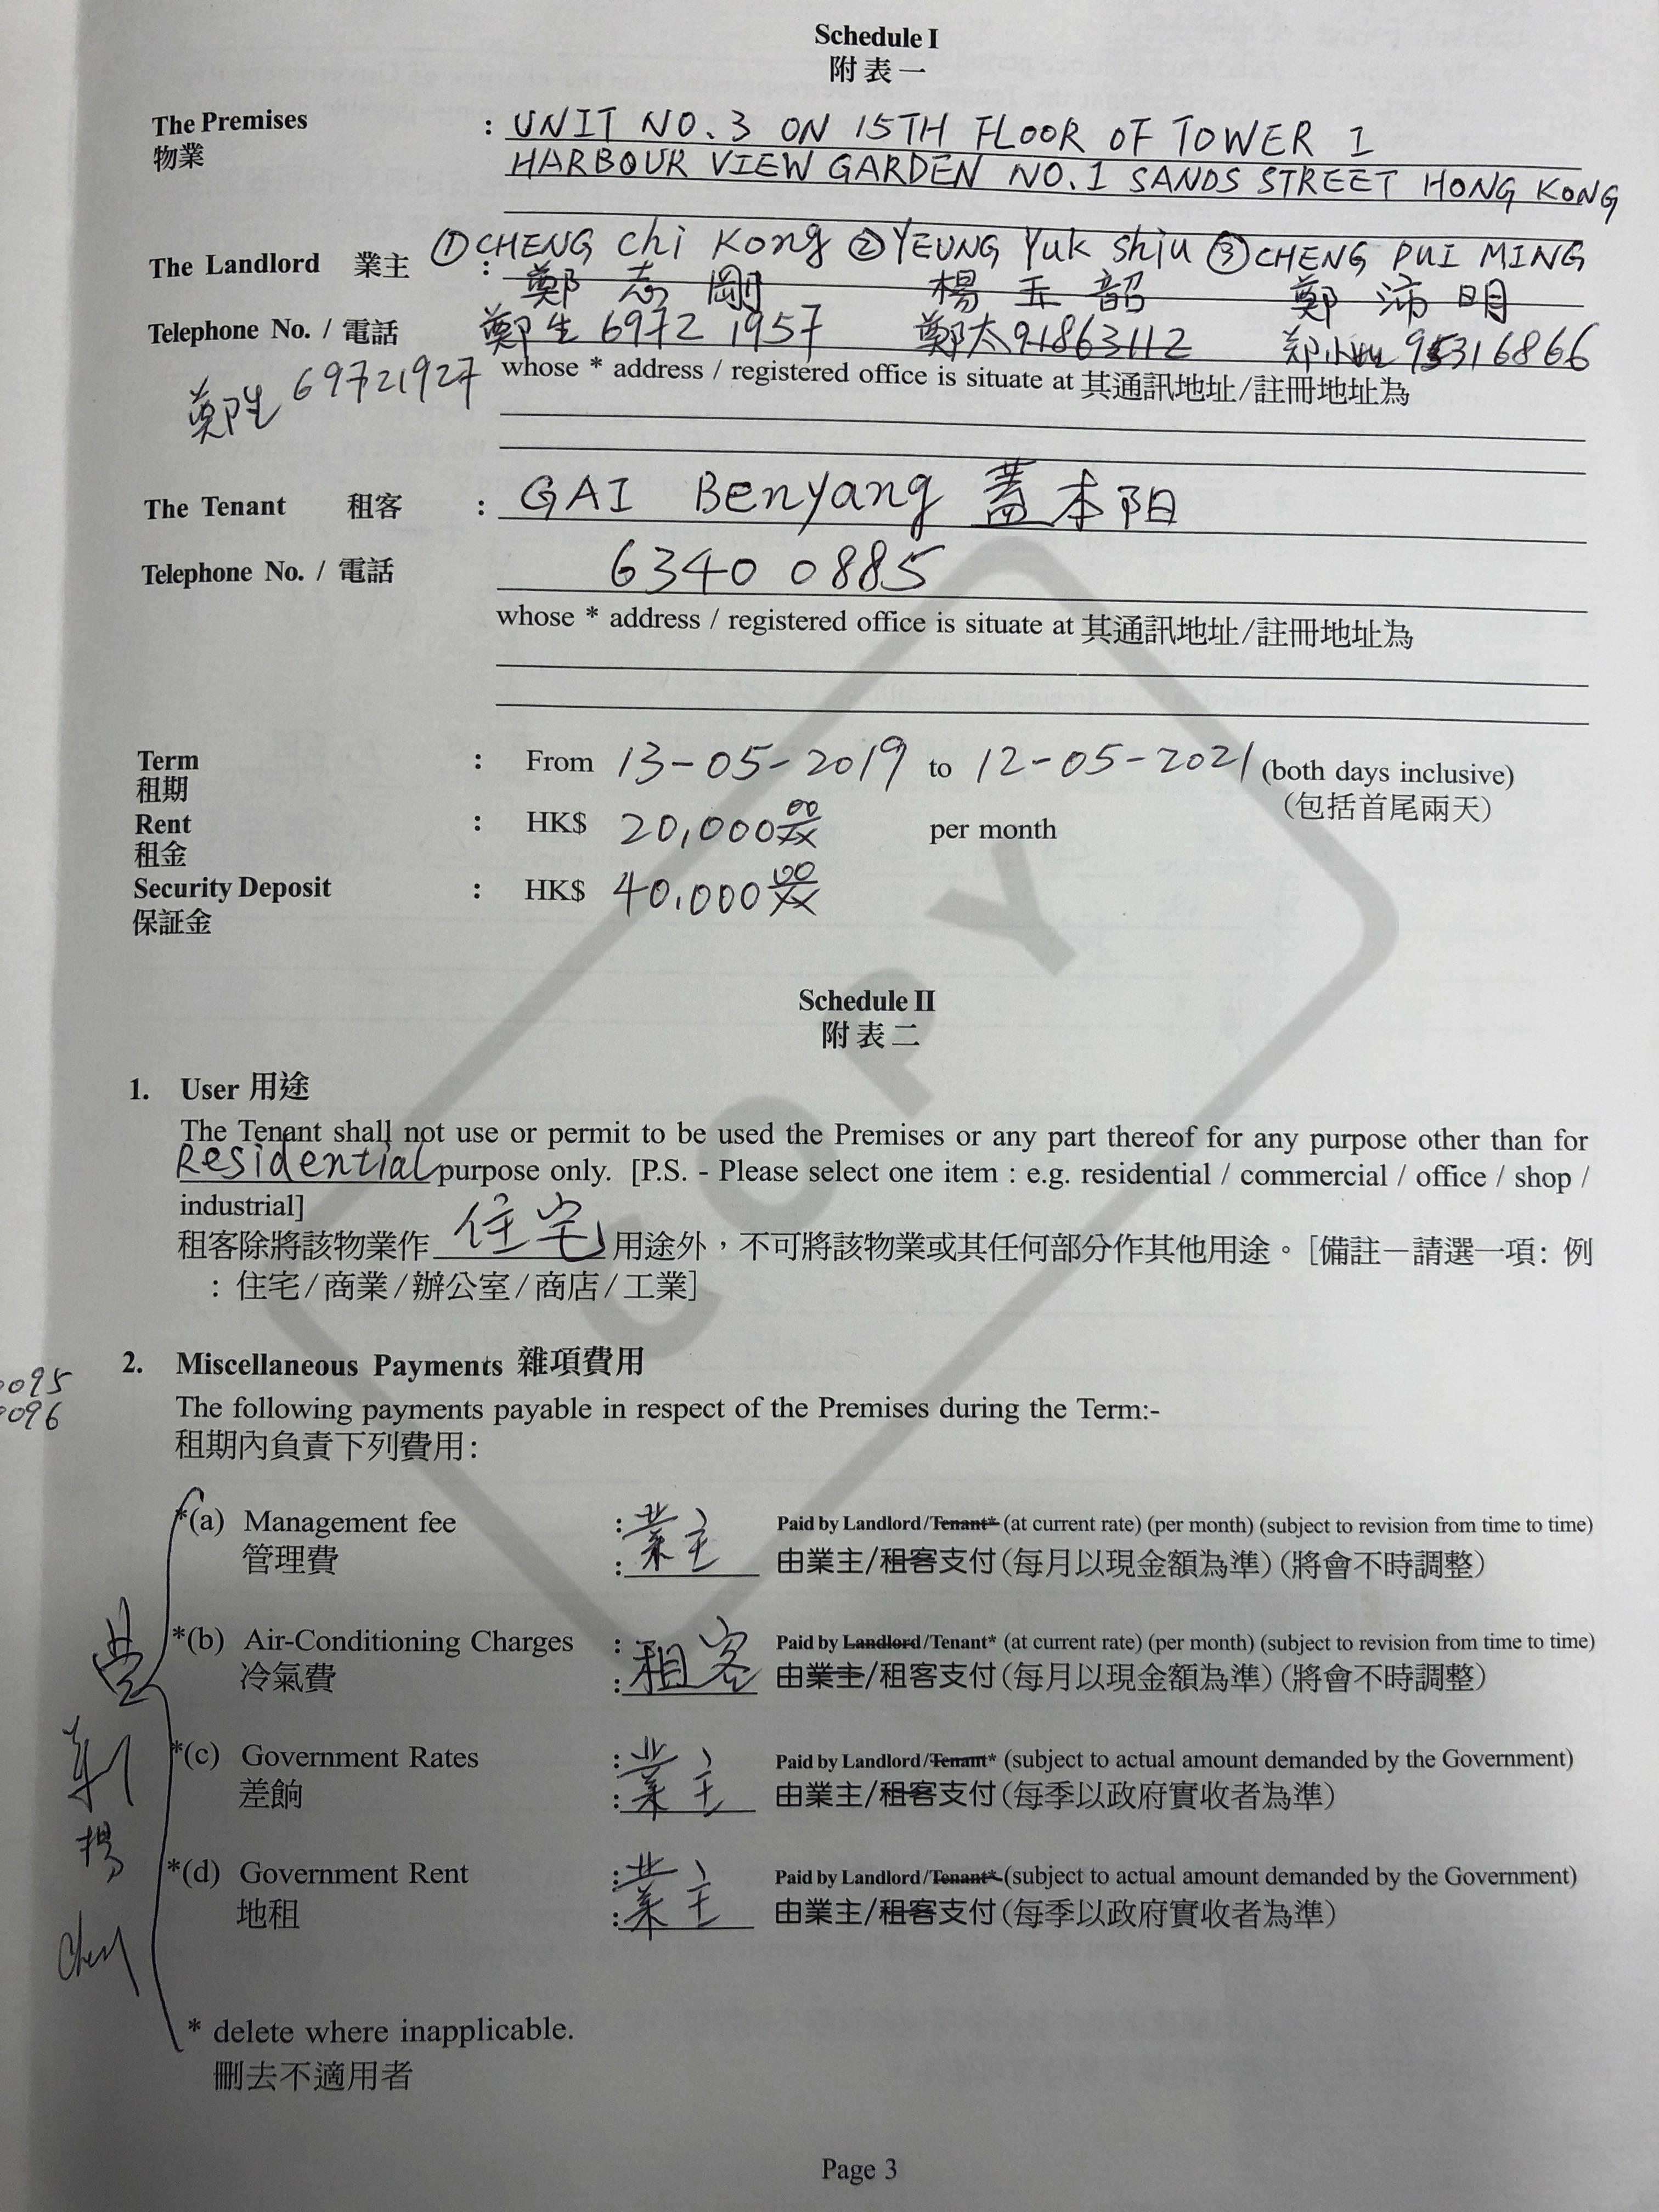 Schedule I
附表一
The Premises : UNIT NO. 3 ON 15TH FLOOR OF TOWER 1
物業 HARBOUR VIEW GARDEN NO. 1 SANDS STREET HONG KONG
The Landlord 業主 : ①CHENG Chi Kong ②YEUNG Yuk Shiu ③CHENG PUI MING
鄭志剛 楊玉韶 鄭沛明
Telephone No. / 電話 鄭生 6972 1957 鄭太 91863112 鄭小姐 95316866
鄭生 69721927
whose * address / registered office is situate at 其通訊地址/註冊地址為
The Tenant 租客 : GAI Benyang 蓋本阳
Telephone No. / 電話 6340 0885
whose * address / registered office is situate at 其通訊地址/註冊地址為
Term : From 13-05-2019 to 12-05-2021 (both days inclusive)
租期 (包括首尾兩天)
Rent : HK$ 20,000 00/XX per month
租金
Security Deposit : HK$ 40,000 00/XX
保証金
Schedule II
附表二
1. User 用途
The Tenant shall not use or permit to be used the Premises or any part thereof for any purpose other than for
Residential purpose only. [P.S. - Please select one item : e.g. residential / commercial / office / shop /
industrial]
租客除將該物業作 住宅 用途外，不可將該物業或其任何部分作其他用途。[備註－請選一項: 例
: 住宅/商業/辦公室/商店/工業]
2. Miscellaneous Payments 雜項費用
0095
0096
The following payments payable in respect of the Premises during the Term:-
租期內負責下列費用:
*(a) Management fee : 業主 Paid by Landlord/Tenant* (at current rate) (per month) (subject to revision from time to time)
管理費 : 由業主/租客支付(每月以現金額為準)(將會不時調整)
*(b) Air-Conditioning Charges : 租客 Paid by Landlord/Tenant* (at current rate) (per month) (subject to revision from time to time)
冷氣費 : 由業主/租客支付(每月以現金額為準)(將會不時調整)
*(c) Government Rates : 業主 Paid by Landlord/Tenant* (subject to actual amount demanded by the Government)
差餉 : 由業主/租客支付(每季以政府實收者為準)
楊
*(d) Government Rent : 業主 Paid by Landlord/Tenant* (subject to actual amount demanded by the Government)
地租 : 由業主/租客支付(每季以政府實收者為準)
* delete where inapplicable.
刪去不適用者
COPY
Page 3